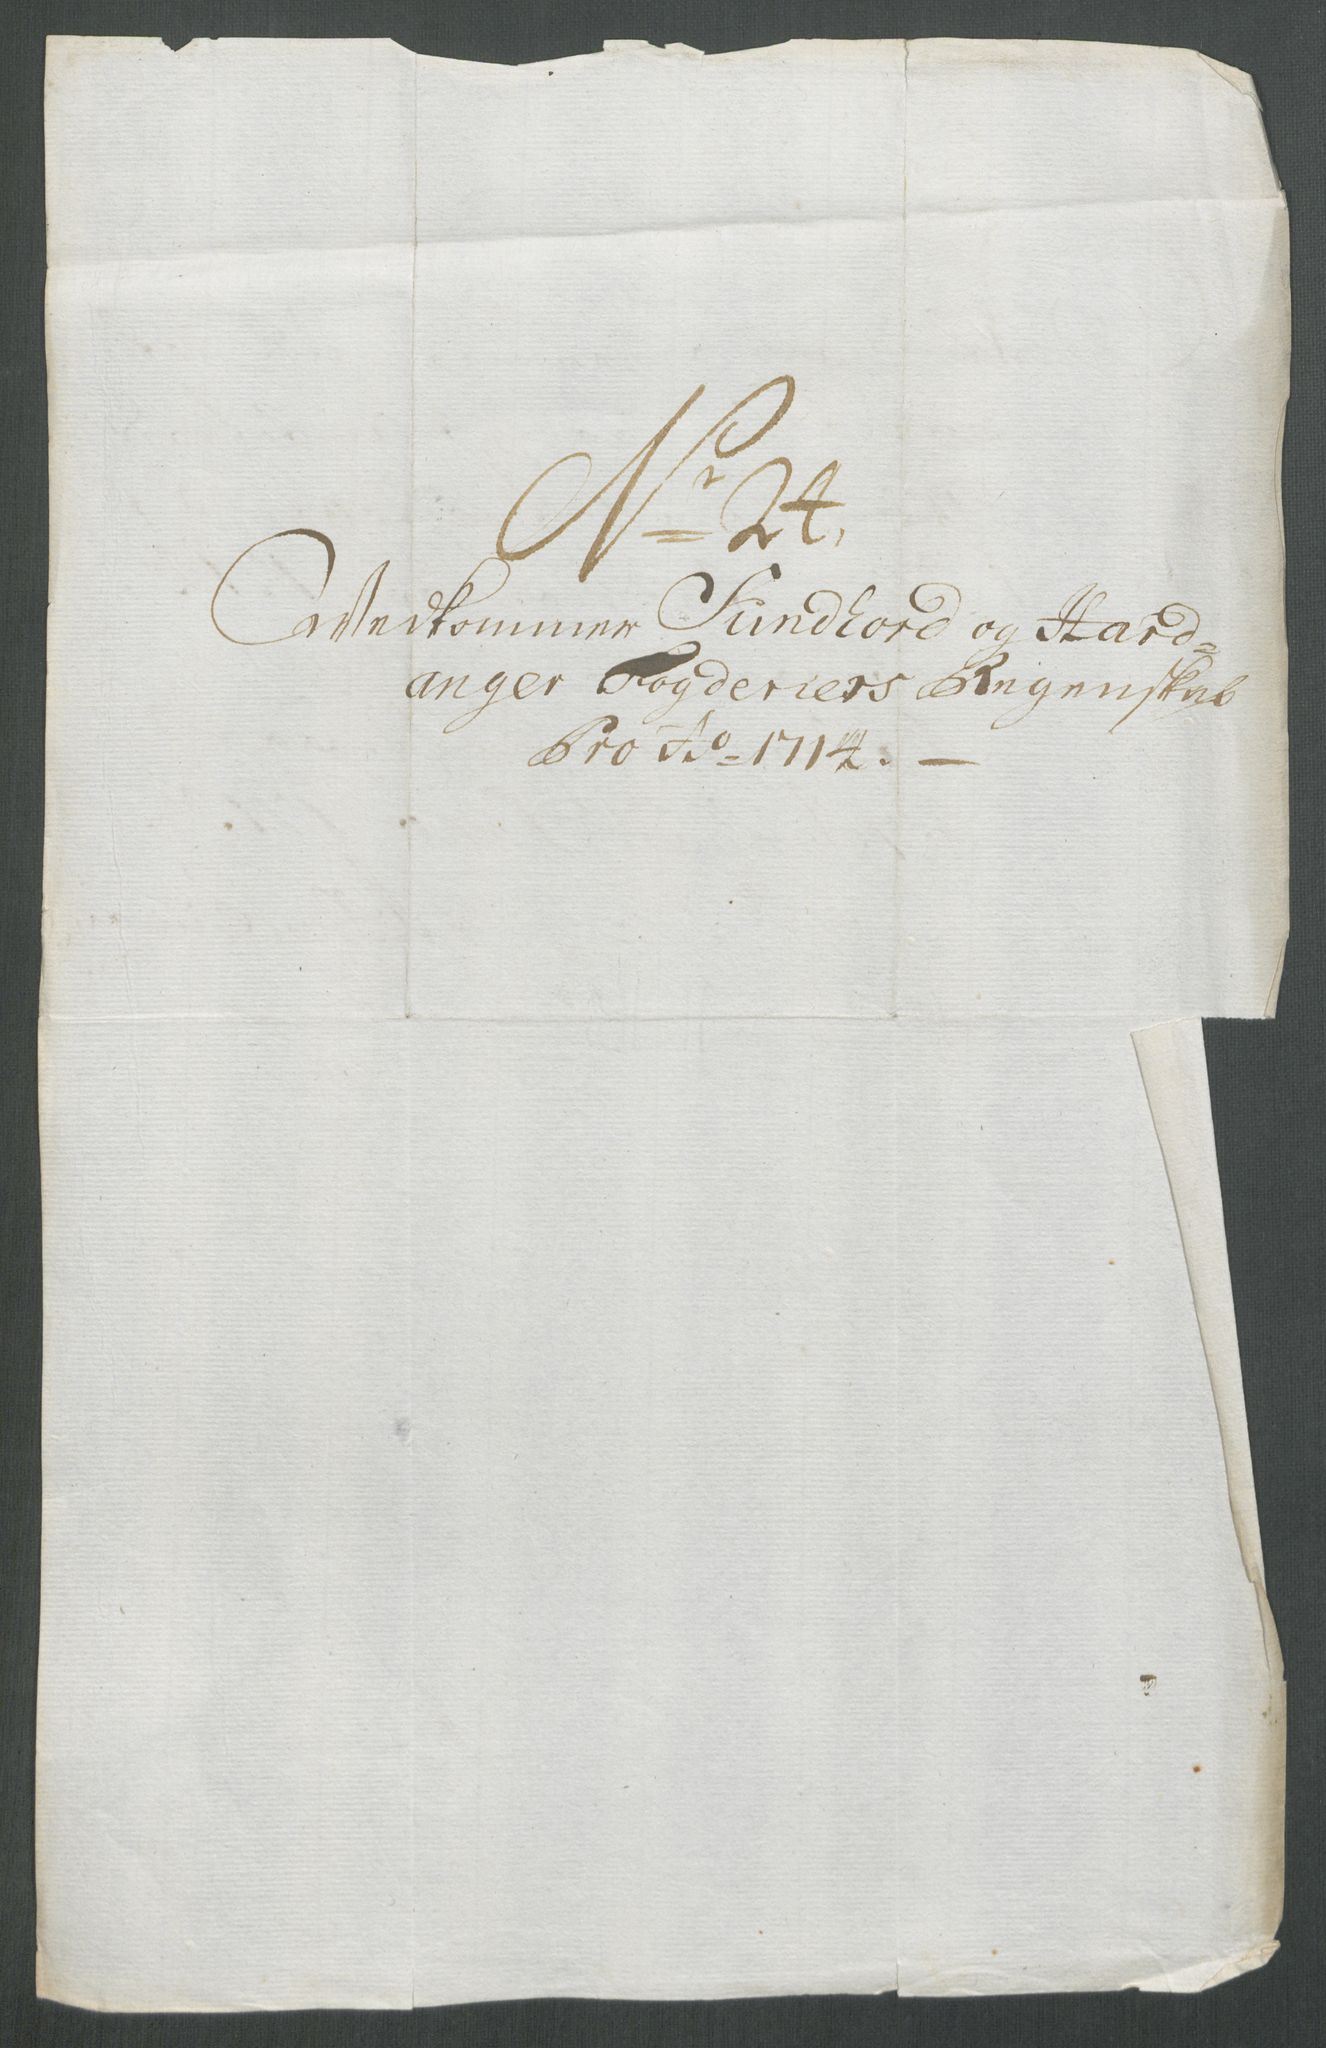 Nr 24,
Vedkommer Sundhord og Hard=
anger Fogderiers Regenskab
Pro Ao 1714. —